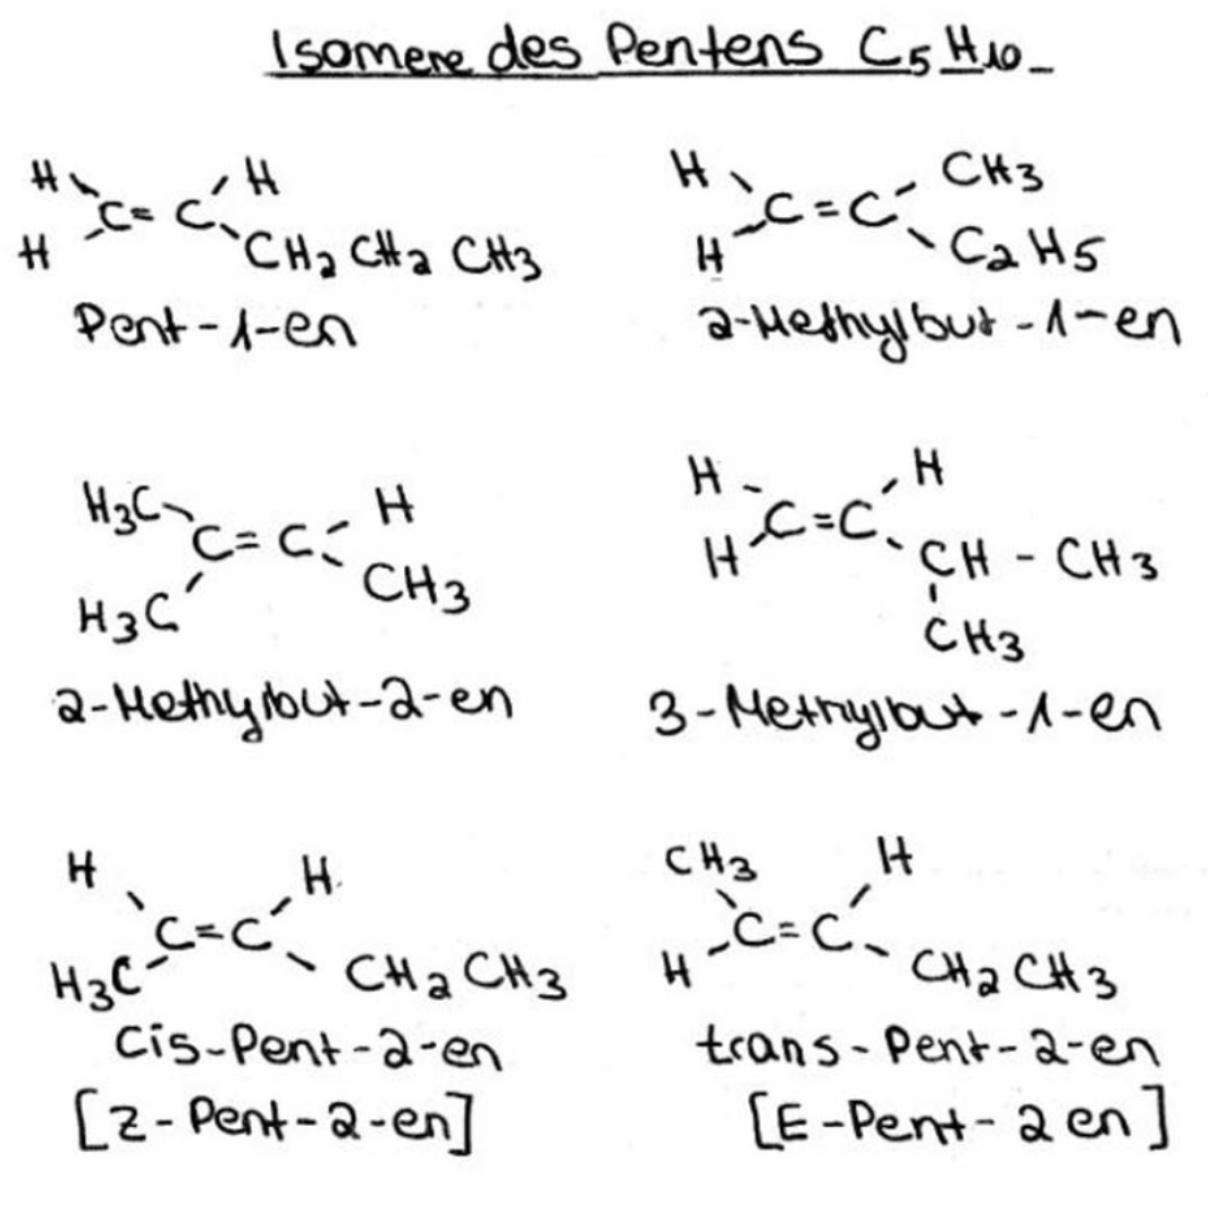 Isomere des Pentens C5H10
H H
C=C
H CH2 CH2 CH3
Pent-1-en
H CH3
C=C
H C2H5
2-Methylbut-1-en
H3C H
C=C
H3C CH3
2-Methylbut-2-en
H H
C=C
H CH-CH3
CH3
3-Methylbut-1-en
H H
C=C
H3C CH2CH3
cis-Pent-2-en
[Z-Pent-2-en]
CH3 H
C=C
H CH2CH3
trans-Pent-2-en
[E-Pent-2en]